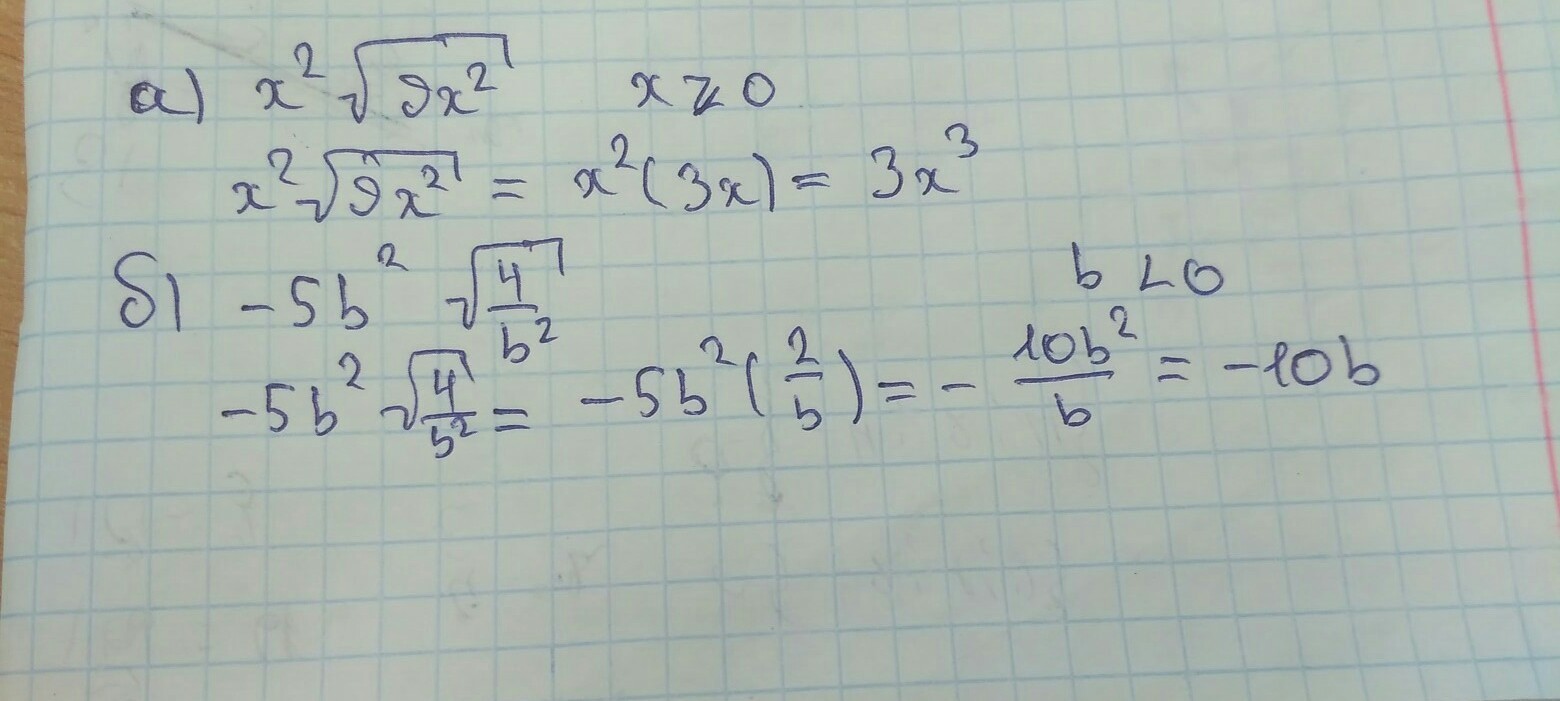 а) x²√(9x²) x ≥ 0
x²√(9x²) = x²(3x) = 3x³
б) -5b² √(4/b²) b < 0
-5b² √(4/b²) = -5b²(2/b) = - 10b²/b = -10b